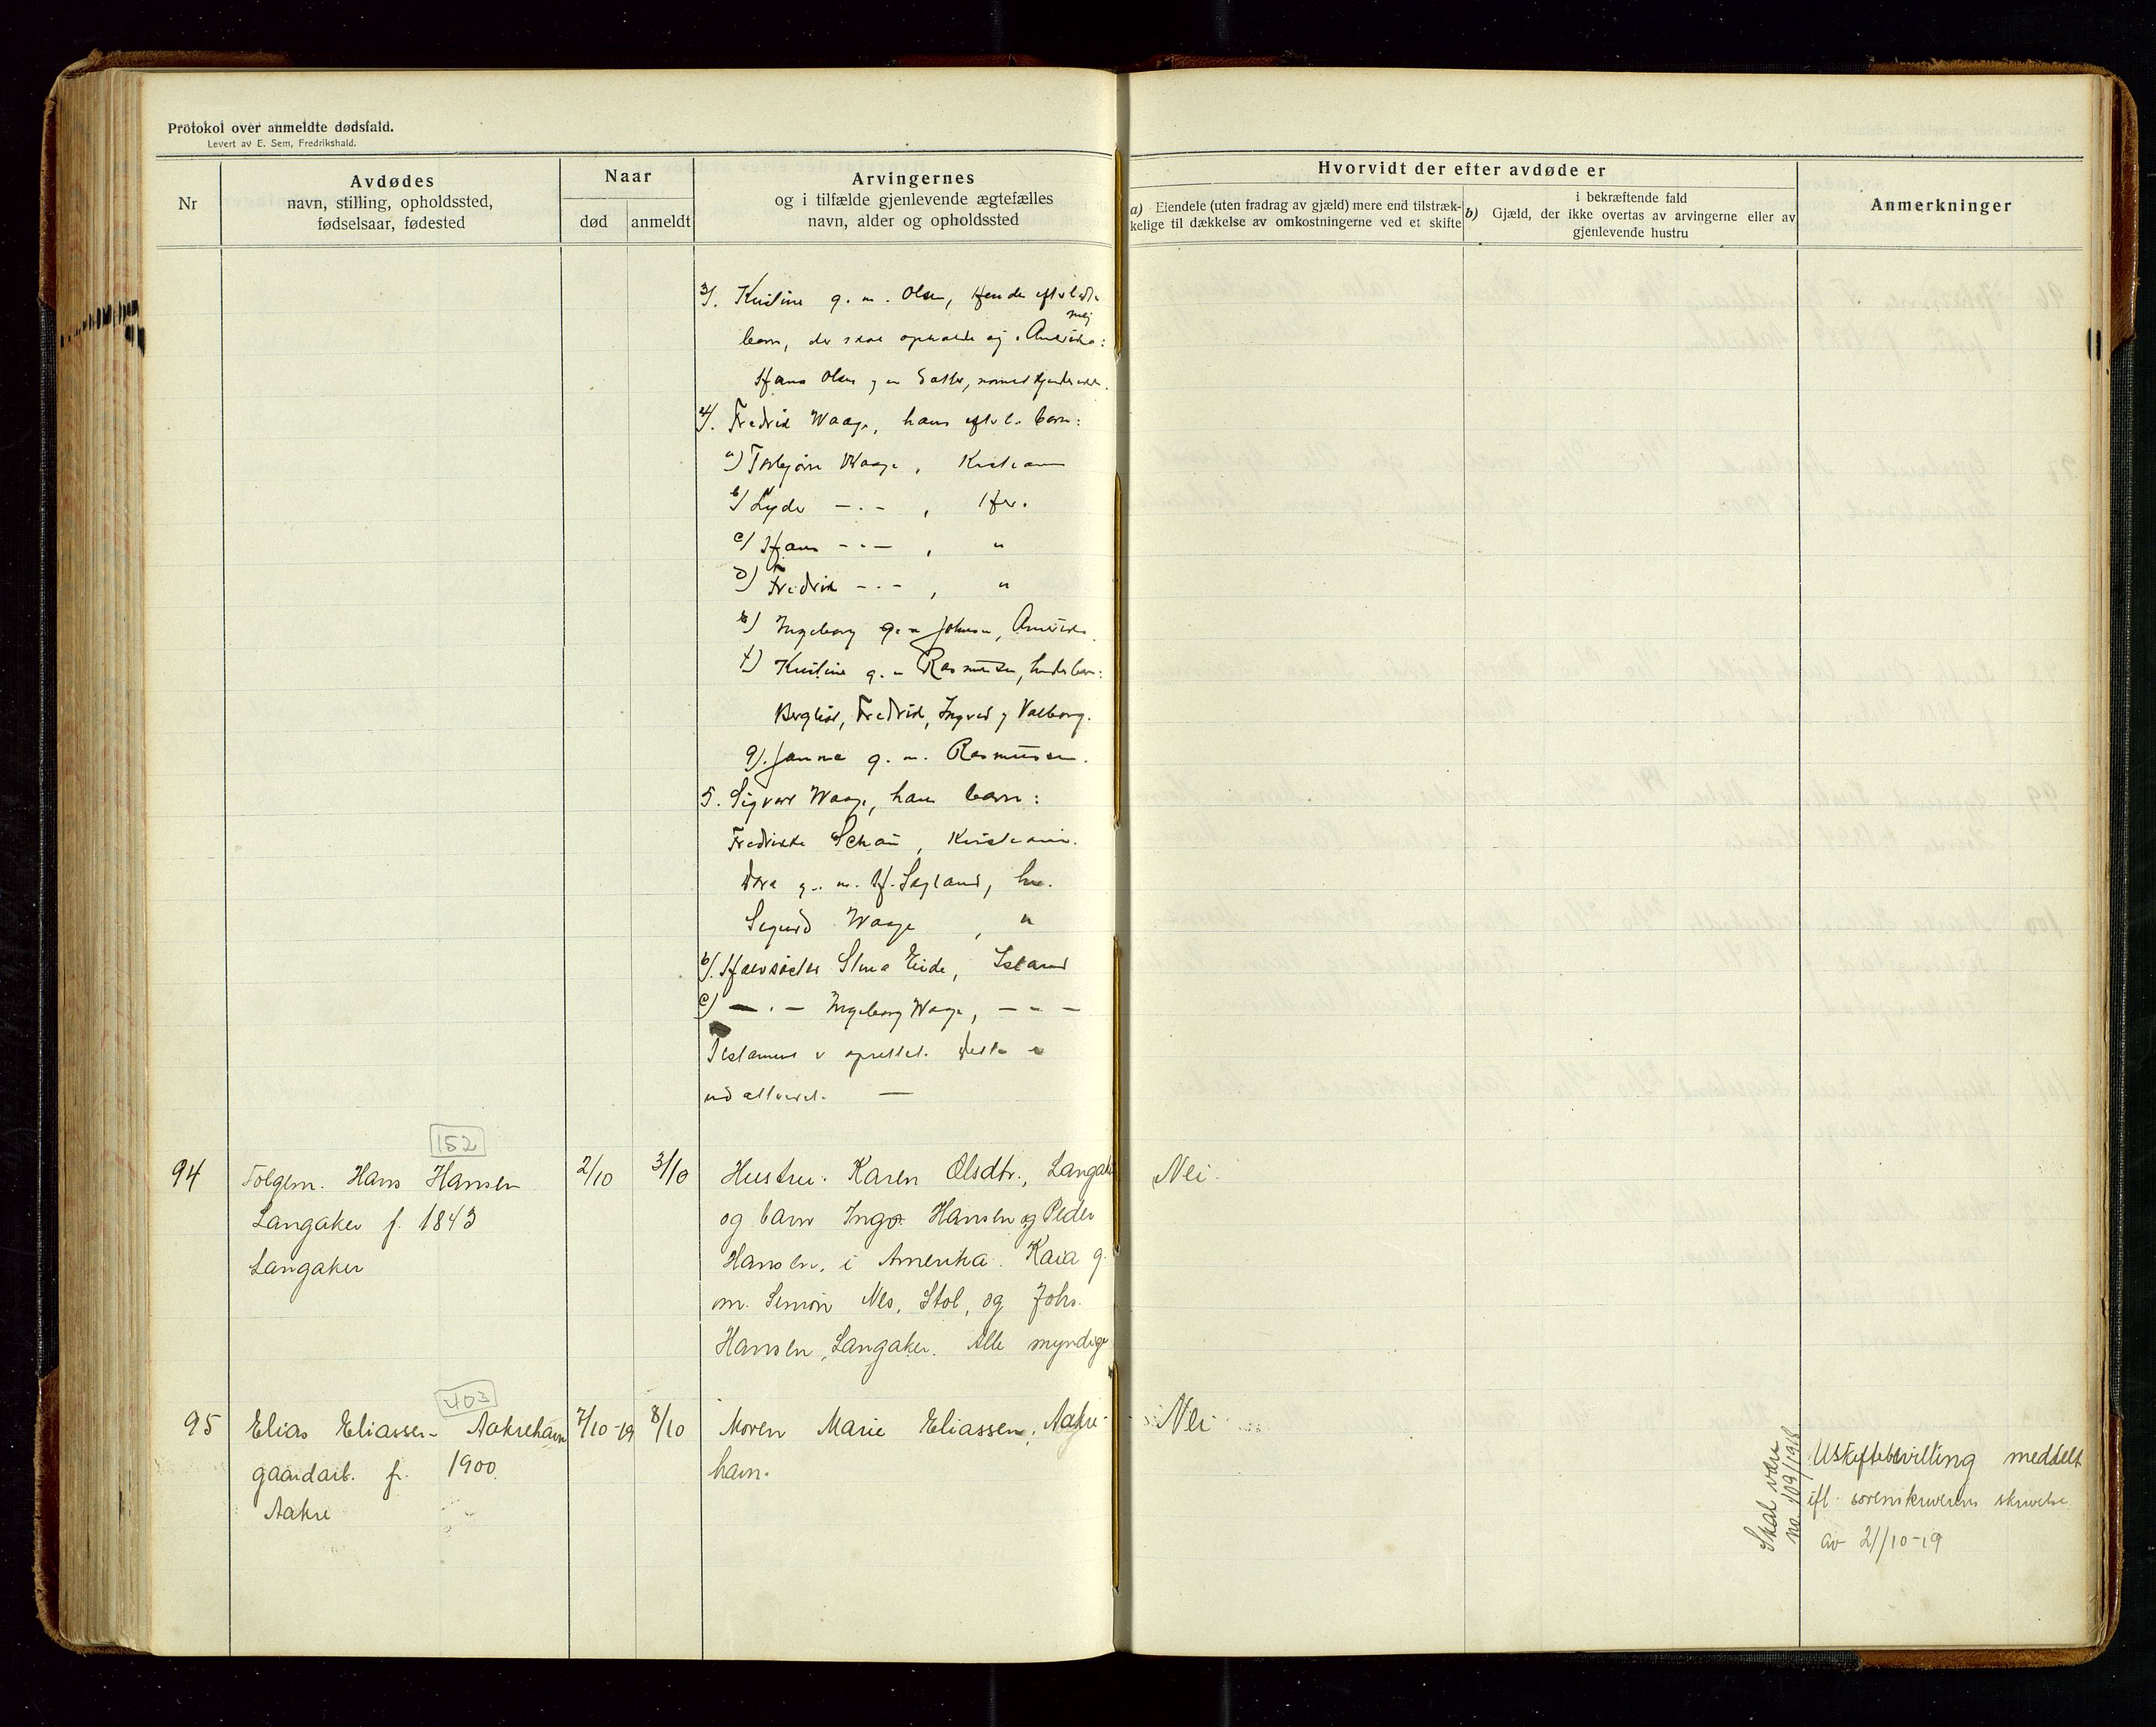 Protokol over anmeldte dødsfald.
Levert av E. Sem, Fredrikshald.
Nr
Avdødes
navn, stilling, opholdssted,
fødselsaar, fødested
Naar
død
anmeldt
Arvingernes
og i tilfælde gjenlevende ægtefælles
navn, alder og opholdssted
Hvorvidt der efter avdøde er
a) Eiendele (uten fradrag av gjæld) mere end tilstræk-
kelige til dækkelse av omkostningerne ved et skifte
i bekræftende fald
b) Gjæld, der ikke overtas av arvingerne eller av
gjenlevende hustru
Anmerkninger
3/. Kristine g. m. Olsen,
barn, der skal opholde sig i Amerika:
Hans Olsen
4/. Fredrik Waage, hans barn:
a) Torbjørn Waage, Kristiania
b) Lyder — . — , Her.
c) Hans — . — , "
d) Fredrik — . — , "
e) Ingeborg g. m. Johnsen, Amerika.
f) Kristine g. m. Rasmussen, hendes barn:
Bergliot, Fredrik, Ingrid og Valborg.
g). Janna g. m. Rasmussen.
5. Sigvart Waage, hans barn:
Fredrikke Schau, Kristiania.
Dora g. m. H. Sagland, her.
Sigurd Waage , "
b/. Halvsøster Stina Eide, Island
c) — . — Ingeborg Waage, — " —
Testament er oprettet. Dette er
udatteret. —
152
94
Folgem. Hans Hansen
Langaker f. 1843
Langaker
2/10
3/10
Hustru: Karen Olsdtr., Langaker
og barn Inga Hansen og Peder
Hansen, i Amerika. Kaia g.
m. Simon Nes, Stol, og Johs.
Hansen, Langaker. Alle myndige
Nei.
403
95
Elias Eliassen - Aakrehavn
gaardarb. f. 1900.
Aakre
7/10-19
8/10
Moren Marie Eliassen, Aakre-
havn.
Nei
Skal være
no 109/1918
Uskiftebevilling meddelt
ifl. sorenskriverens skrivelse
av 21/10-19